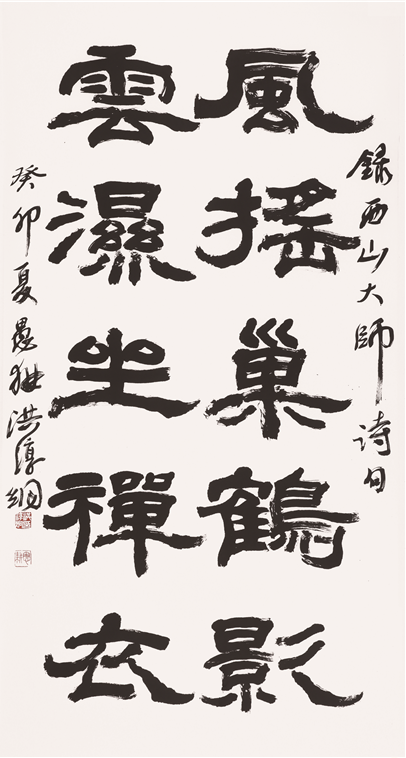 錄西山大師詩句
風搖巢鶴影
雲濕坐禪衣
癸卯夏愚狂洪淳綱